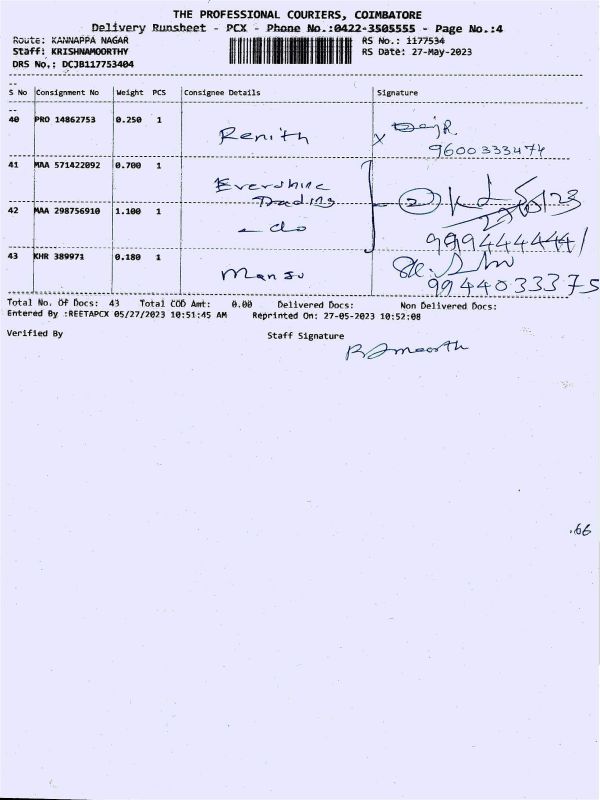 THE PROFESSIONAL COURIERS, COIMBATORE
Delivery Runsheet - PCX - Phone No.:0422-3505555 - Page No.:4
Route: KANNAPPA NAGAR
RS No.: 1177534
Staff: KRISHNAMOORTHY
RS Date: 27-May-2023
DRS No.: DCJB117753404
S No Consignment No Weight PCS Consignee Details Signature
40 PRO 14862753 0.250 1 Renith
9600333474
41 MAA 571422092 0.700 1 Evershine Trading
42 MAA 298756910 1.100 1 - do
2
9994444441
43 KHR 389971 0.180 1 Manju
9944033375
Total No. Of Docs: 43 Total COD Amt: 0.00 Delivered Docs: Non Delivered Docs:
Entered By :REETAPCX 05/27/2023 10:51:45 AM Reprinted On: 27-05-2023 10:52:08
Verified By Staff Signature
.66